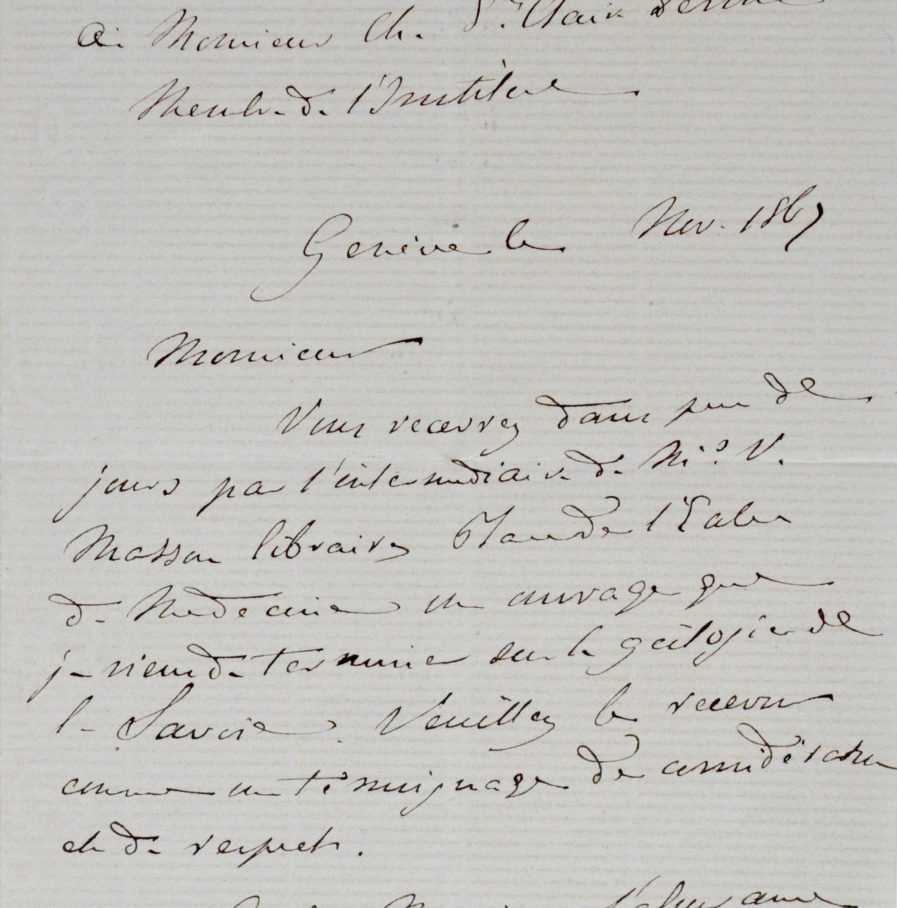 à Monsieur Ch. Ste Claire Deville
Membre de l'Institut
Genève le Nov. 1867
Monsieur
Vous recevrez dans peu de
jours par l'intermédiaire de Mr. V.
Masson libraire Place de l'Ecole
de Médecine un ouvrage que
je viens de terminer sur la géologie de
la Savoie. Veuillez le recevoir
comme un témoignage de considération
et de respect.